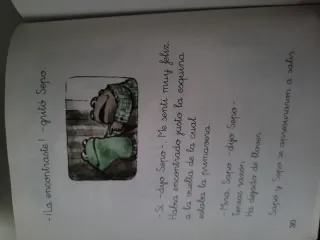 -¡La encontraste! -gritó Sapo.
-Sí -dijo Sepo-. Me sentí muy feliz.
Había encontrado justo la esquina
a la vuelta de la cual
estaba la primavera.
-Mira, Sapo -dijo Sepo-.
Tenías razón.
Ha dejado de llover.
Sapo y Sepo se apresuraron a salir
30